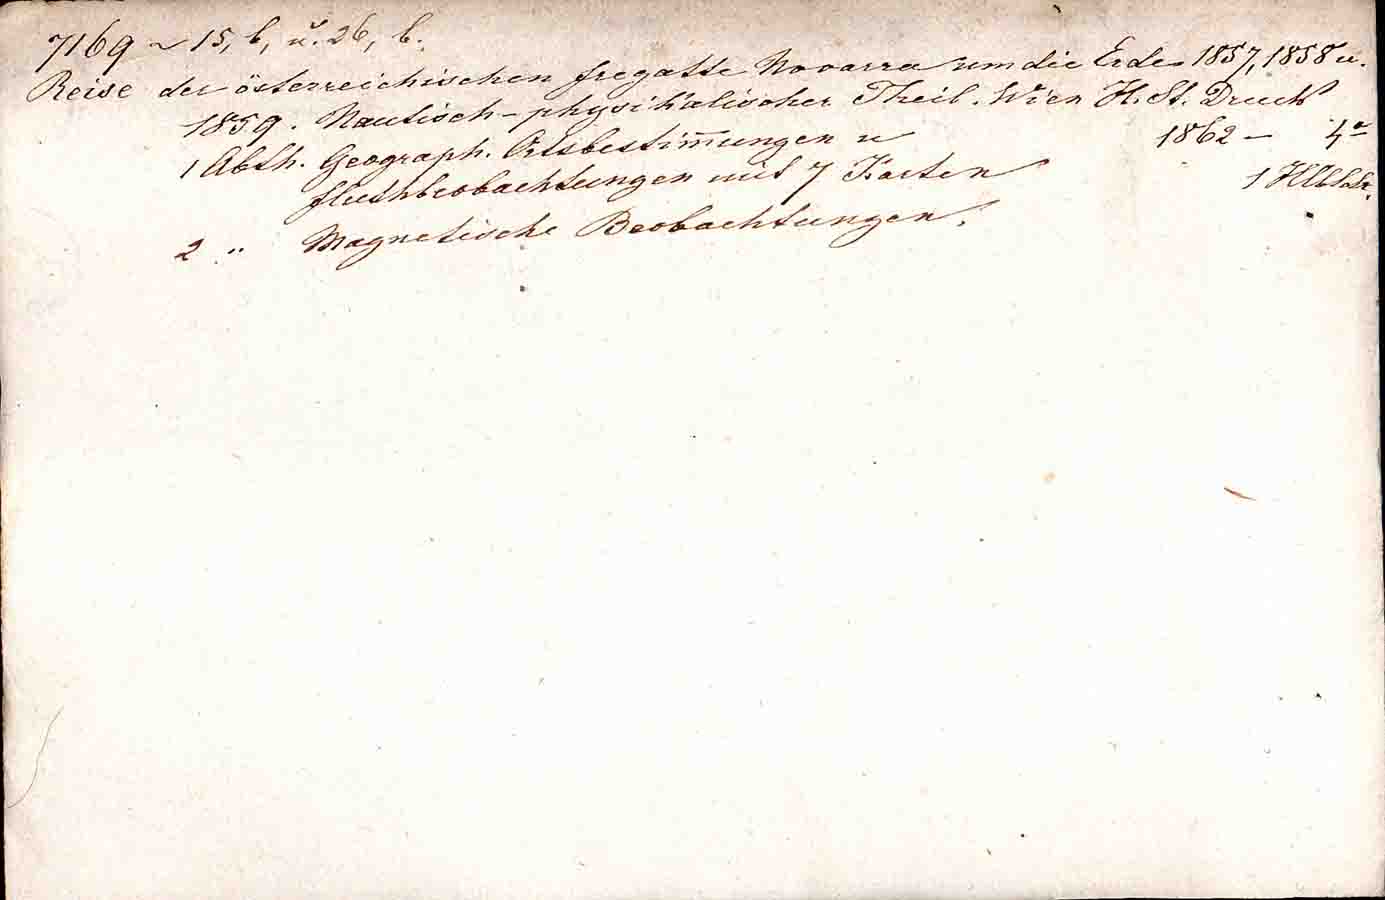 7169 ~ 15, b, u. 26, b.
Reise der österreichischen Fregatte Novarra um die Erde 1857, 1858 u.
1859. Nautisch-physikalischer Theil. Wien H. St. Druck
1862 — 4°
1 Abth. Geograph. Ortsbestim̅ungen u
Fluthbeobachtungen mit 7 Karten
2 " Magnetische Beobachtungen.